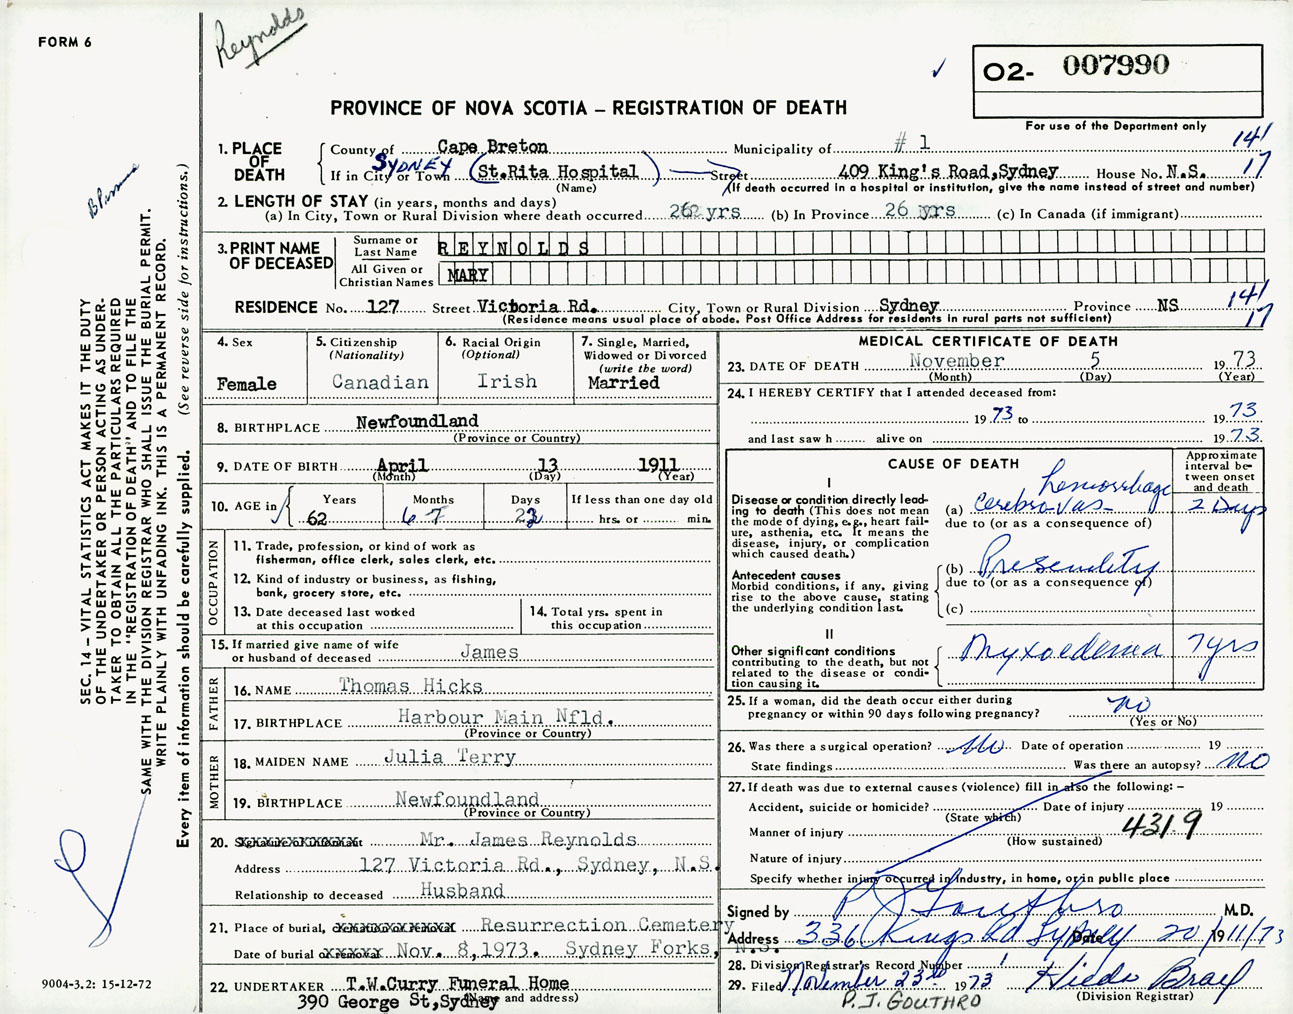 Reynolds
FORM 6
O2- 007990
PROVINCE OF NOVA SCOTIA – REGISTRATION OF DEATH
For use of the Department only
1. PLACE OF DEATH
County of Cape Breton Municipality of # 1 141
SYDNEY
If in City or Town (St.Rita Hospital) Street 409 King's Road,Sydney House No. N.S. 17
(Name) (If death occurred in a hospital or institution, give the name instead of street and number)
2. LENGTH OF STAY (in years, months and days)
(a) In City, Town or Rural Division where death occurred 26 yrs (b) In Province 26 yrs (c) In Canada (if immigrant)
3. PRINT NAME OF DECEASED
Surname or Last Name REYNOLDS
All Given or Christian Names MARY
RESIDENCE No. 127 Street Victoria Rd. City, Town or Rural Division Sydney Province NS 141
(Residence means usual place of abode. Post Office Address for residents in rural parts not sufficient) 17
4. Sex
Female
5. Citizenship
(Nationality)
Canadian
6. Racial Origin
(Optional)
Irish
7. Single, Married,
Widowed or Divorced
(write the word)
Married
8. BIRTHPLACE Newfoundland
(Province or Country)
9. DATE OF BIRTH April 13 1911
(Month) (Day) (Year)
10. AGE in
Years Months Days If less than one day old
62 6 7 22 hrs. or min.
OCCUPATION
11. Trade, profession, or kind of work as
fisherman, office clerk, sales clerk, etc.
12. Kind of industry or business, as fishing,
bank, grocery store, etc.
13. Date deceased last worked
at this occupation
14. Total yrs. spent in
this occupation
15. If married give name of wife
or husband of deceased James
FATHER
16. NAME Thomas Hicks
17. BIRTHPLACE Harbour Main Nfld.
(Province or Country)
MOTHER
18. MAIDEN NAME Julia Terry
19. BIRTHPLACE Newfoundland
(Province or Country)
20. Signature of informant Mr. James Reynolds
Address 127 Victoria Rd., Sydney, N.S.
Relationship to deceased Husband
21. Place of burial, cremation or removal Resurrection Cemetery
Date of burial or removal Nov. 8,1973. Sydney Forks, N.S.
22. UNDERTAKER T.W.Curry Funeral Home
390 George St,Sydney (Name and address)
MEDICAL CERTIFICATE OF DEATH
23. DATE OF DEATH November 5 1973
(Month) (Day) (Year)
24. I HEREBY CERTIFY that I attended deceased from:
1973 to 1973
and last saw h alive on 1973
CAUSE OF DEATH
Approximate interval between onset and death
I
Disease or condition directly leading to death (This does not mean the mode of dying, e.g., heart failure, asthenia, etc. It means the disease, injury, or complication which caused death.)
hemorrhage
(a) Cerebro-vas- 2 Days
due to (or as a consequence of)
Antecedent causes
Morbid conditions, if any, giving rise to the above cause, stating the underlying condition last.
(b) Presenility
due to (or as a consequence of)
(c)
II
Other significant conditions contributing to the death, but not related to the disease or condition causing it.
Myxoedema 7 yrs
25. If a woman, did the death occur either during
pregnancy or within 90 days following pregnancy? no
(Yes or No)
26. Was there a surgical operation? No Date of operation 19
State findings Was there an autopsy? no
27. If death was due to external causes (violence) fill in also the following: –
Accident, suicide or homicide? Date of injury 19
(State which)
Manner of injury 4319
(How sustained)
Nature of injury
Specify whether injury occurred in Industry, in home, or in public place
Signed by P J Gouthro M.D.
Address 336 Kings Rd Sydney Date 20/11/73
28. Division Registrar's Record Number
29. Filed November 23rd 1973 Hilda Brael
(Division Registrar)
P.J. GOUTHRO
SEC. 14 – VITAL STATISTICS ACT MAKES IT THE DUTY
OF THE UNDERTAKER OR PERSON ACTING AS UNDER-
TAKER TO OBTAIN ALL THE PARTICULARS REQUIRED
IN THE "REGISTRATION OF DEATH" AND TO FILE THE
SAME WITH THE DIVISION REGISTRAR WHO SHALL ISSUE THE BURIAL PERMIT.
WRITE PLAINLY WITH UNFADING INK. THIS IS A PERMANENT RECORD.
Every item of information should be carefully supplied. (See reverse side for instructions.)
9004-3.2: 15-12-72